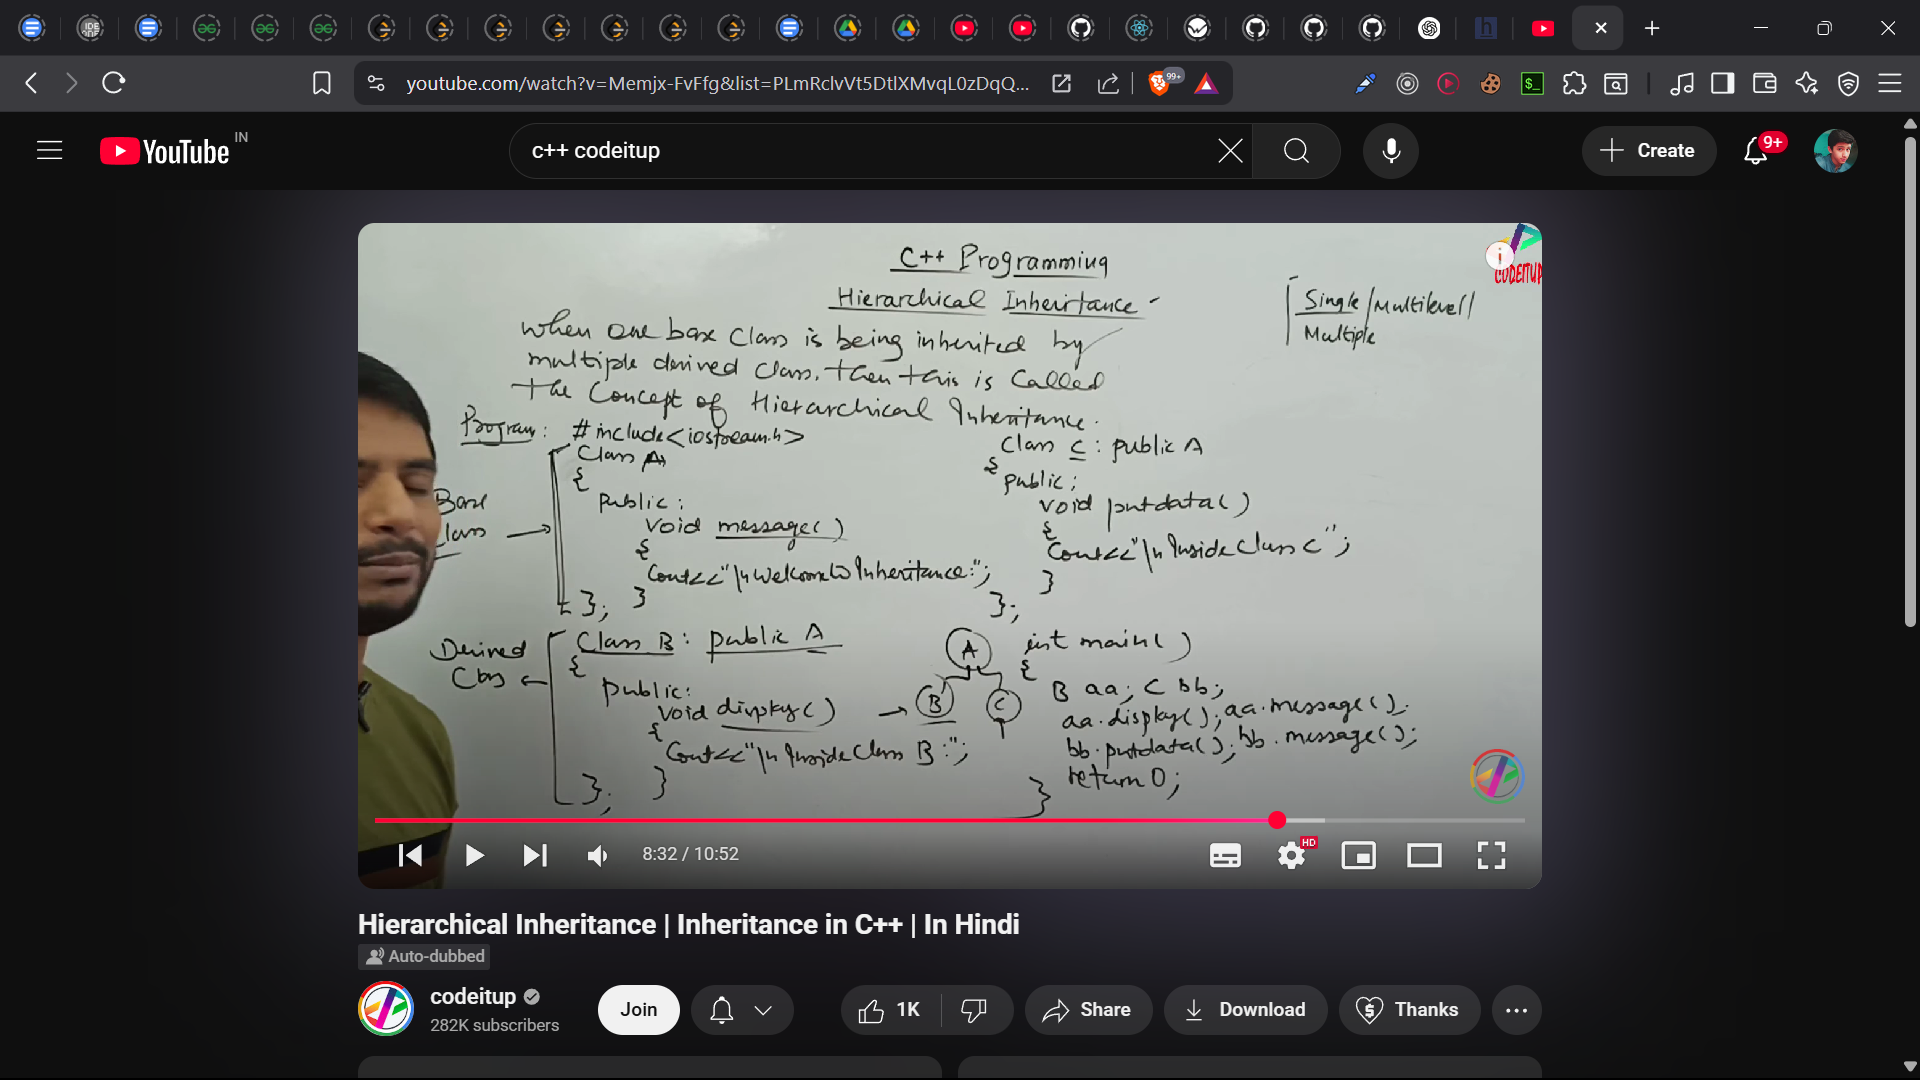 youtube.com/watch?v=Memjx-FvFfg&list=PLmRclvVt5DtlXMvqL0zDqQ...
99+
YouTube
IN
c++ codeitup
Create
9+
C++ Programming
Hierarchical Inheritance
Single/Multilevel/
Multiple
When one base class is being inherited by
multiple derived class, then this is called
the concept of Hierarchical Inheritance.
Program: #include<iostream.h>
Class A
{
public:
void message()
{
Cout<<"\nWelcome to Inheritance:";
}
};
Base
Class
Class B: public A
{
public:
void display()
{
Cout<<"\n Inside Class B:";
}
};
Derived
Class
Class C: public A
{
public:
void putdata()
{
Cout<<"\n Inside Class C";
}
};
A
B
C
int main()
{
B aa; C bb;
aa.display(); aa.message();
bb.putdata(); bb.message();
return 0;
}
CODEITUP
8:32 / 10:52
HD
Hierarchical Inheritance | Inheritance in C++ | In Hindi
Auto-dubbed
codeitup
282K subscribers
Join
1K
Share
Download
Thanks